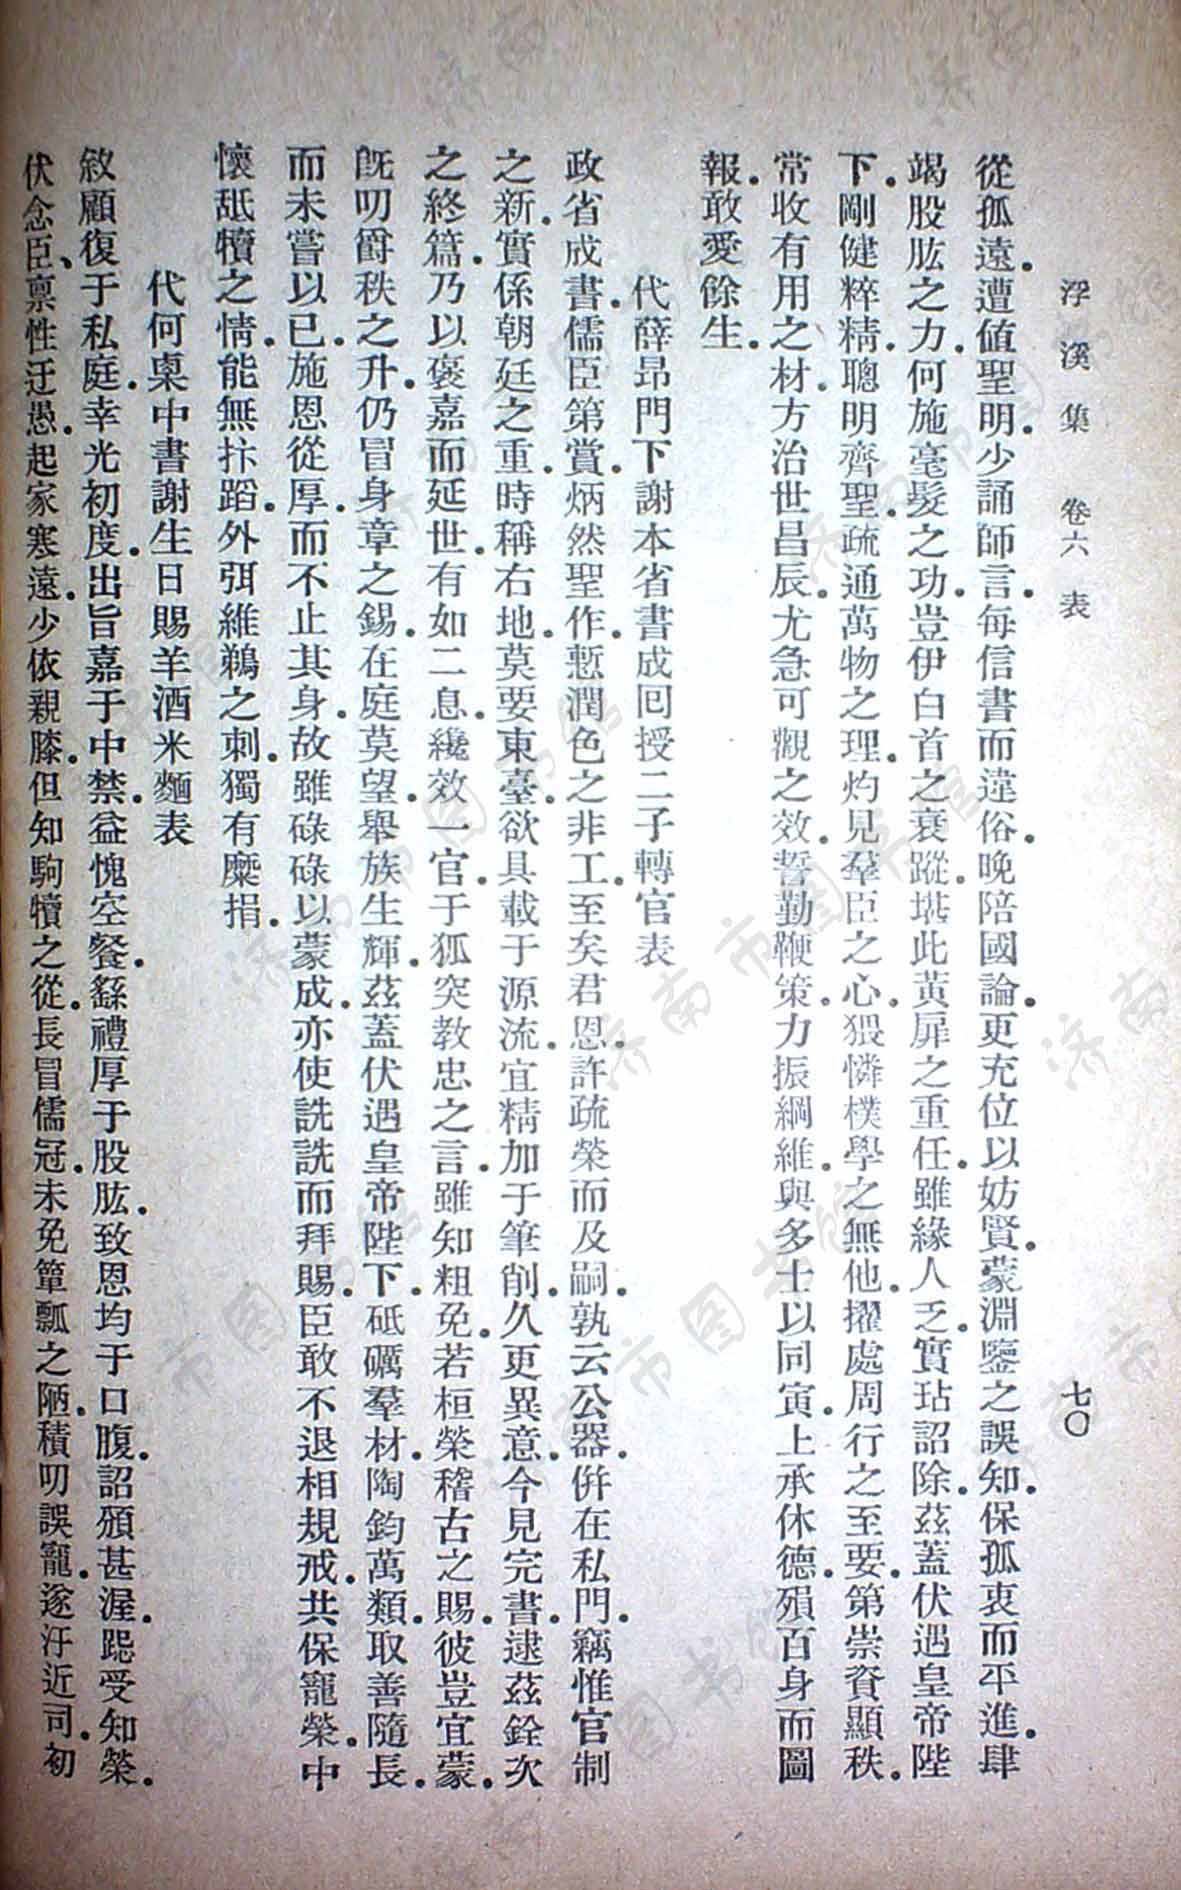 浮溪集 卷六 表 七〇
從孤遠遭値聖明少誦師言每信書而違俗晚陪國論更充位以妨賢蒙淵鑒之誤知保孤衷而平進肆
竭股肱之力何施毫髮之功豈伊白首之衰蹤堪此黃扉之重任雖緣人乏實玷詔除茲蓋伏遇皇帝陛
下剛健粹精聰明齊聖疏通萬物之理灼見羣臣之心猥憐樸學之無他擢處周行之至要第崇資顯秩
常收有用之材方治世昌辰尤急可觀之效誓勤鞭策力振綱維與多士以同寅上承休德殞百身而圖
報敢愛餘生
代薛昂門下謝本省書成回授二子轉官表
政省成書儒臣第賞炳然聖作慙潤色之非工至矣君恩許疏榮而及嗣孰云公器併在私門竊惟官制
之新實係朝廷之重時稱右地莫要東臺欲具載于源流宜精加于筆削久更異意今見完書逮茲銓次
之終篇乃以褒嘉而延世有如二息纔效一官于狐突教忠之言雖知粗免若桓榮稽古之賜彼豈宜蒙
旣叨爵秩之升仍冒身章之錫在庭莫望舉族生輝茲蓋伏遇皇帝陛下砥礪羣材陶鈞萬類取善隨長
而未嘗以已施恩從厚而不止其身故雖碌碌以蒙成亦使詵詵而拜賜臣敢不退相規戒共保寵榮中
懷舐犢之情能無抃蹈外弭維鵜之刺獨有糜捐
代何㮚中書謝生日賜羊酒米麵表
敘顧復于私庭幸光初度出旨嘉于中禁益愧空餐繇禮厚于股肱致恩均于口腹詔頒甚渥跽受知榮
伏念臣禀性迂愚起家寒遠少依親膝但知駒犢之從長冒儒冠未免簞瓢之陋積叨誤寵遂汙近司初